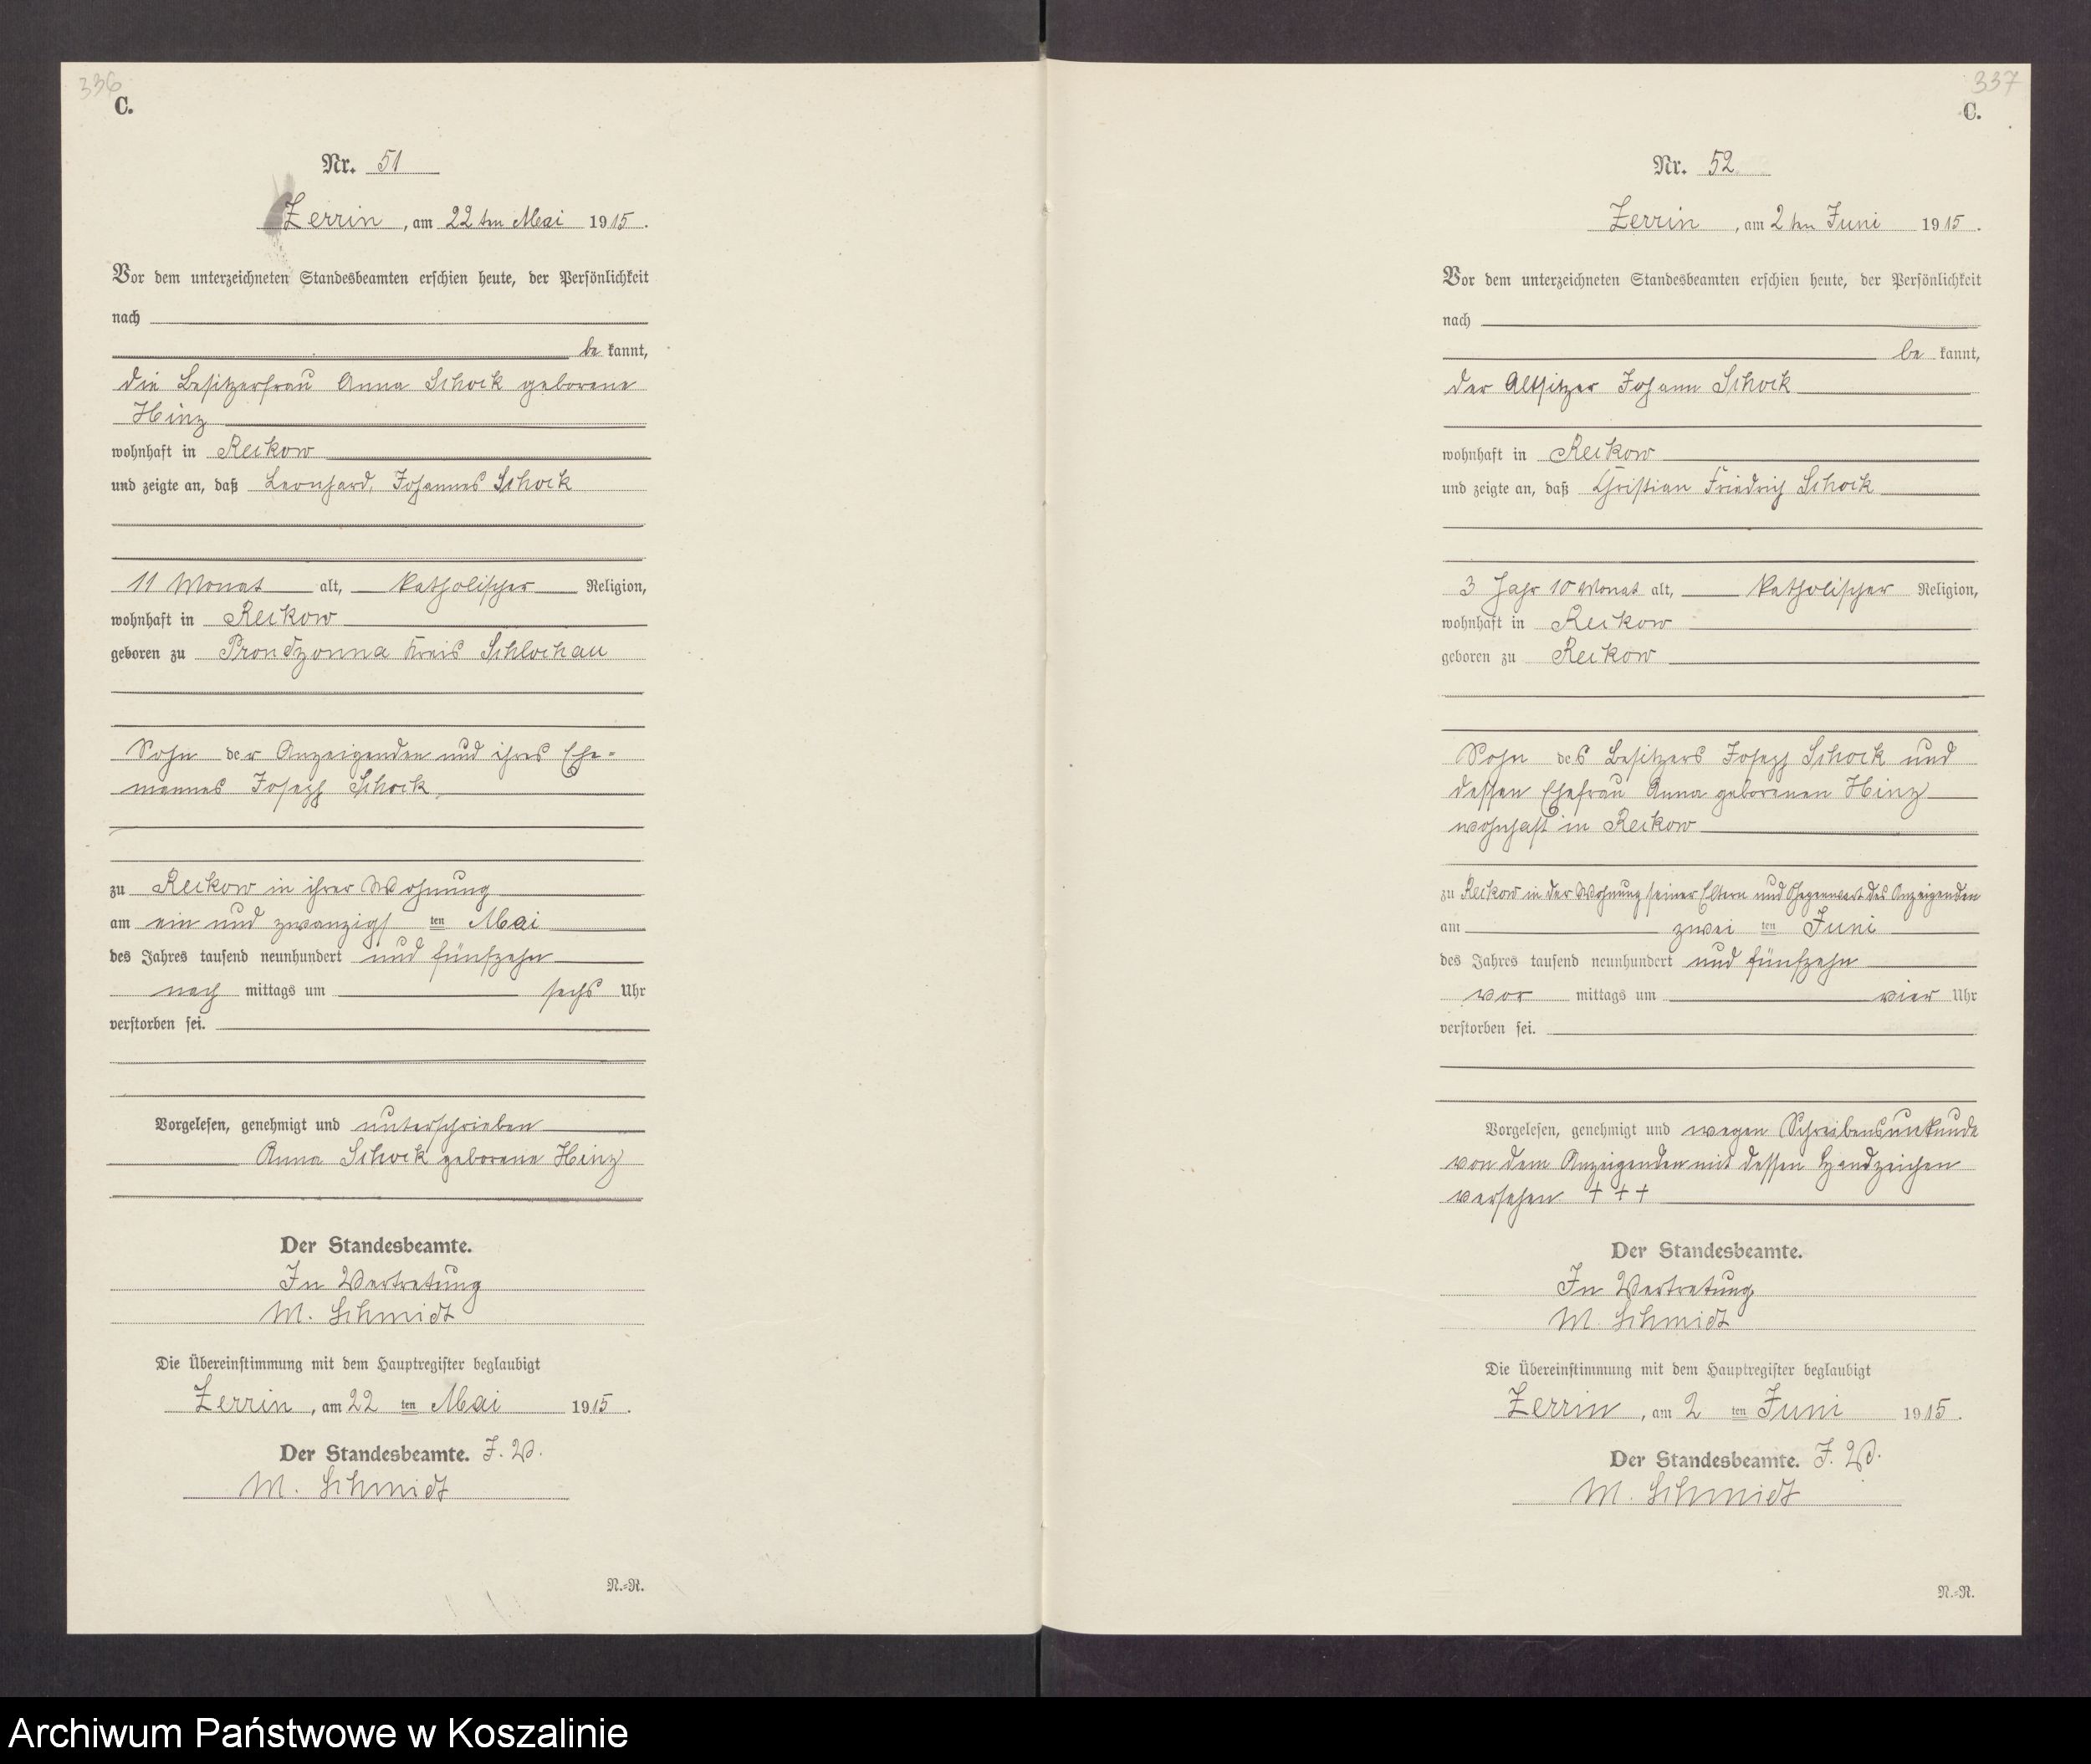 336
C.
Nr. 51
Zerrin, am 22ten Mai 1915.
Vor dem unterzeichneten Standesbeamten erschien heute, der Persönlichkeit
nach
be kannt,
die Besitzerfrau Anna Schock geborene
Hinz
wohnhaft in Reckow
und zeigte an, daß Leonhard, Johannes Schock
11 Monat alt, katholischer Religion,
wohnhaft in Reckow
geboren zu Prondzonna Kreis Schlochau
Sohn der Anzeigenden und ihres Ehe=
mannes Joseph Schock
zu Reckow in ihrer Wohnung
am ein und zwanzigsten Mai
des Jahres tausend neunhundert und fünfzehn
nach mittags um sechs Uhr
verstorben sei.
Vorgelesen, genehmigt und unterschrieben
Anna Schock geborene Hinz
Der Standesbeamte.
In Vertretung
M. Schmidt
Die Übereinstimmung mit dem Hauptregister beglaubigt
Zerrin, am 22 ten Mai 1915.
Der Standesbeamte. J. V.
M. Schmidt
N.=R.
337
C.
Nr. 52
Zerrin, am 2ten Juni 1915.
Vor dem unterzeichneten Standesbeamten erschien heute, der Persönlichkeit
nach
be kannt,
der Altsitzer Johann Schock
wohnhaft in Reckow
und zeigte an, daß Christian Friedrich Schock
3 Jahr 10 Monat alt, katholischer Religion,
wohnhaft in Reckow
geboren zu Reckow
Sohn des Besitzers Joseph Schock und
dessen Ehefrau Anna geborenen Hinz
wohnhaft in Reckow
zu Reckow in der Wohnung seiner Eltern und Gegenwart des Anzeigenden
am zwei ten Juni
des Jahres tausend neunhundert und fünfzehn
vor mittags um vier Uhr
verstorben sei.
Vorgelesen, genehmigt und wegen Schreibensunkunde
von dem Anzeigenden mit dessen Handzeichen
versehen + + +
Der Standesbeamte.
In Vertretung
M. Schmidt
Die Übereinstimmung mit dem Hauptregister beglaubigt
Zerrin, am 2 ten Juni 1915.
Der Standesbeamte. J. V.
M. Schmidt
N.=R.
Archiwum Państwowe w Koszalinie